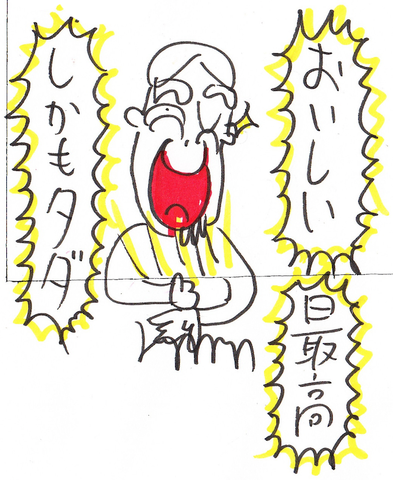 おいしい
最高
しかもタダ